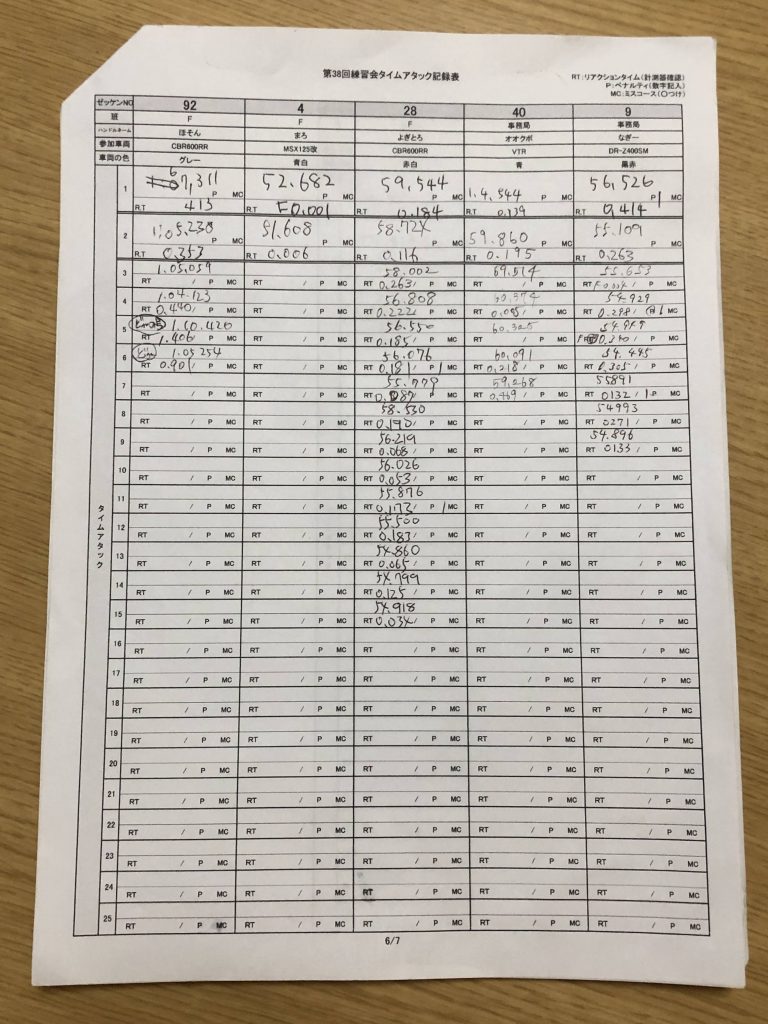 第38回練習会タイムアタック記録表
RT:リアクションタイム(計測器確認)
P:ペナルティ(数字記入)
MC:ミスコース(〇つけ)
ゼッケンNO 92 4 28 40 9
班 F F F 事務局 事務局
ハンドルネーム ほそん まろ よぎとろ オオクボ なぎー
参加車両 CBR600RR MSX125改 CBR600RR VTR DR-Z400SM
車両の色 グレー 青白 赤白 青 黒赤
タイムアタック
1 52.682 59,544 1.4,544 56,526
P MC P MC P MC P MC P MC
R.T 413 R.T F0.001 R.T 12.184 R.T 0.139 R.T 0,414
2 1:05.230 51.608 58.72X 59.860 55.109
P MC P MC P MC P MC P MC
R.T 0.353 R.T 0.006 R.T 0.116 R.T 0.195 R.T 0.263
3 1.05.059 58.002 55.653
RT / P MC RT / P MC RT 0.263/ P MC RT / P MC RT P MC
4 1.04.123 56.808 60.374 54.929
RT 0.440/ P MC RT / P MC RT 0.222/ P MC RT 0.095/ P MC RT 0.298/ 1 MC
5 1.00.420 56.550 60.305
RT 1.406/ P MC RT / P MC RT 0.185/ P MC RT / P MC RT P MC
6 1.05254 56.076 60.091 54.495
RT 0.90/ P MC RT / P MC RT 0.181/ P 1 MC RT 0.218/ P MC RT 0.305/ P MC
7 55.779 59.268 55891
RT / P MC RT / P MC RT P MC RT P MC RT 0132/ 1 P MC
8 58.530 54993
RT / P MC RT / P MC RT 0.190/ P MC RT / P MC RT 0271/ P MC
9 56.219 54.896
RT / P MC RT / P MC RT 0.068/ P MC RT / P MC RT 0133/ P MC
10 56.026
RT / P MC RT / P MC RT 0.053/ P MC RT / P MC RT / P MC
11 55.876
RT / P MC RT / P MC RT 0.173/ P 1 MC RT / P MC RT / P MC
12 55.500
RT / P MC RT / P MC RT 0.183/ P MC RT / P MC RT / P MC
13 54.860
RT / P MC RT / P MC RT 0.065/ P MC RT / P MC RT / P MC
14 54.799
RT / P MC RT / P MC RT 0.125/ P MC RT / P MC RT / P MC
15 54.918
RT / P MC RT / P MC RT 0.034/ P MC RT / P MC RT / P MC
16
RT / P MC RT / P MC RT / P MC RT / P MC RT / P MC
17
RT / P MC RT / P MC RT / P MC RT / P MC RT / P MC
18
RT / P MC RT / P MC RT / P MC RT / P MC RT / P MC
19
RT / P MC RT / P MC RT / P MC RT / P MC RT / P MC
20
RT / P MC RT / P MC RT / P MC RT / P MC RT / P MC
21
RT / P MC RT / P MC RT / P MC RT / P MC RT / P MC
22
RT / P MC RT / P MC RT / P MC RT / P MC RT / P MC
23
RT / P MC RT / P MC RT / P MC RT / P MC RT / P MC
24
RT / P MC RT / P MC RT / P MC RT / P MC RT / P MC
25
RT / P MC RT / P MC RT / P MC RT / P MC RT / P MC
6/7